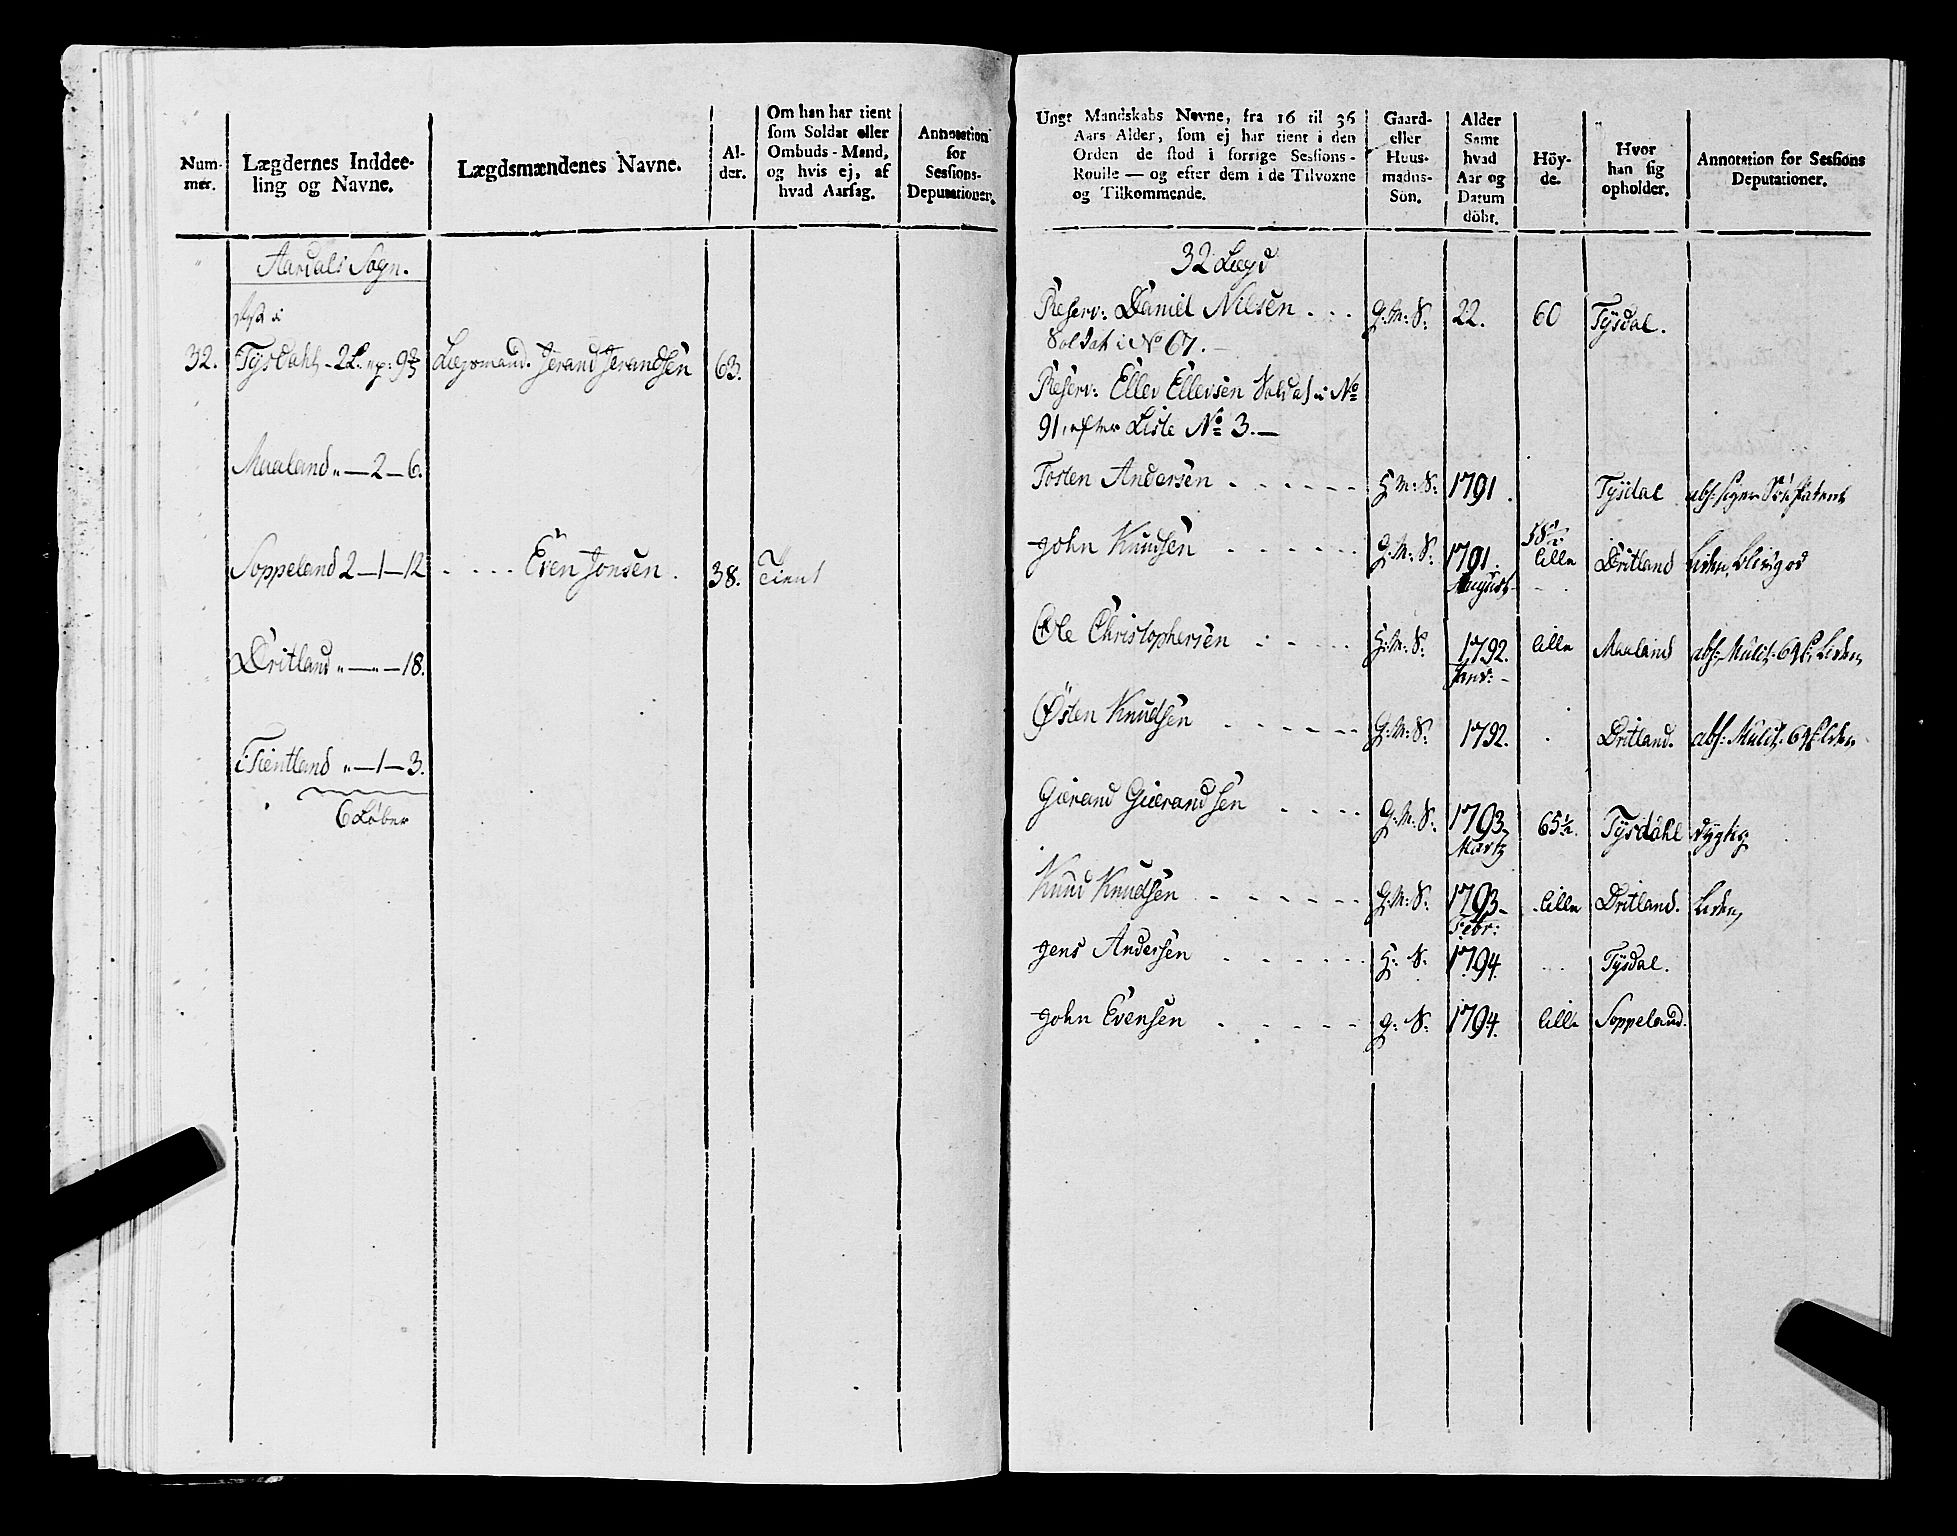 Num-
mer.
Lægdernes Inddee-
ling og Navne.
Lægdsmændenes Navne.
Al-
der.
Om han har tient
som Soldat eller
Ombuds-Mand,
og hvis ej, af
hvad Aarsag.
Annotation
for
Sessions-
Deputationen.
Aardals Sogn.
32. Tÿsdahl - 2 L. " p: 9 Liegsmand. Jerand Jerandsen 63.
Maaland " — 2 — 6.
Soppeland 2 — 1 — 12 - - - - Even Jonsen. 38. Tient
Dritland " — " — 18.
i Tientland " — 1 — 3.
6 Løber
Ungt Mandskabs Navne, fra 16 til 36
Aars Alder, som ej har tient i den
Orden de stod i forrige Sessions-
Roulle — og efter dem i de Tilvoxne
og Tilkommende.
Gaard-
eller
Huus-
mands-
Sön.
Alder
Samt
hvad
Aar og
Datum
döbt.
Höy-
de.
Hvor
han sig
opholder.
Annotation for Sessions
Deputationer.
32 Lægd
Reserv: Daniel Nilsen . . . G: M: S: 22. 60 Tÿsdal.
Soldat i No 67. —
Reserv: Ellev Ellevsen Soldat i No
91, efter Liste No 3. —
Tosten Andersen - - - - - - H: M: S: 1791. Tÿsdal abs:
John Knudsen - - - - - - G: M: S: 1791. August lille Dritland Liden,
Ole Christophersen - - - - H: M: S: 1792. Janv: - lille Maaland abs: Mulct. Liden,
Østen Knudsen - - - - - - G: M: S: 1792. Dritland. abs: Mulct.
Gierand Gierandsen - - - - G: M: S: 1793. Martz 65½. Tÿsdahl dygtig
Knud Knudsen - - - - - - G: M: S: 1793. Febr: lille Dritland. Liden,
Jens Andersen - - - - - - H: S: 1794. . . . Tÿsdal.
John Evensen - - - - - - G: S: 1794. lille Soppeland.